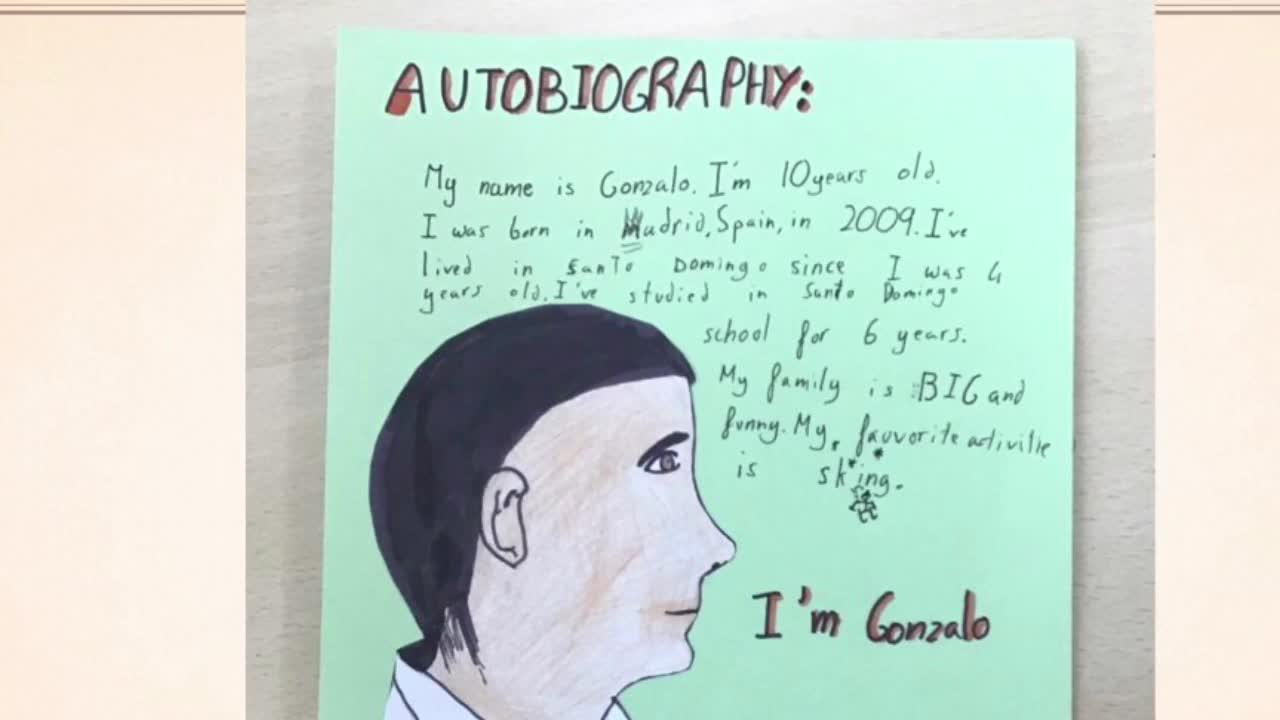 AUTOBIOGRAPHY:
My name is Gonzalo. I'm 10 years old.
I was born in Madrid, Spain, in 2009. I've
lived in Santo Domingo since I was 4
years old. I've studied in Santo Domingo
school for 6 years.
My family is BIG and
funny. My favvorite activitie
is sking.
I'm Gonzalo